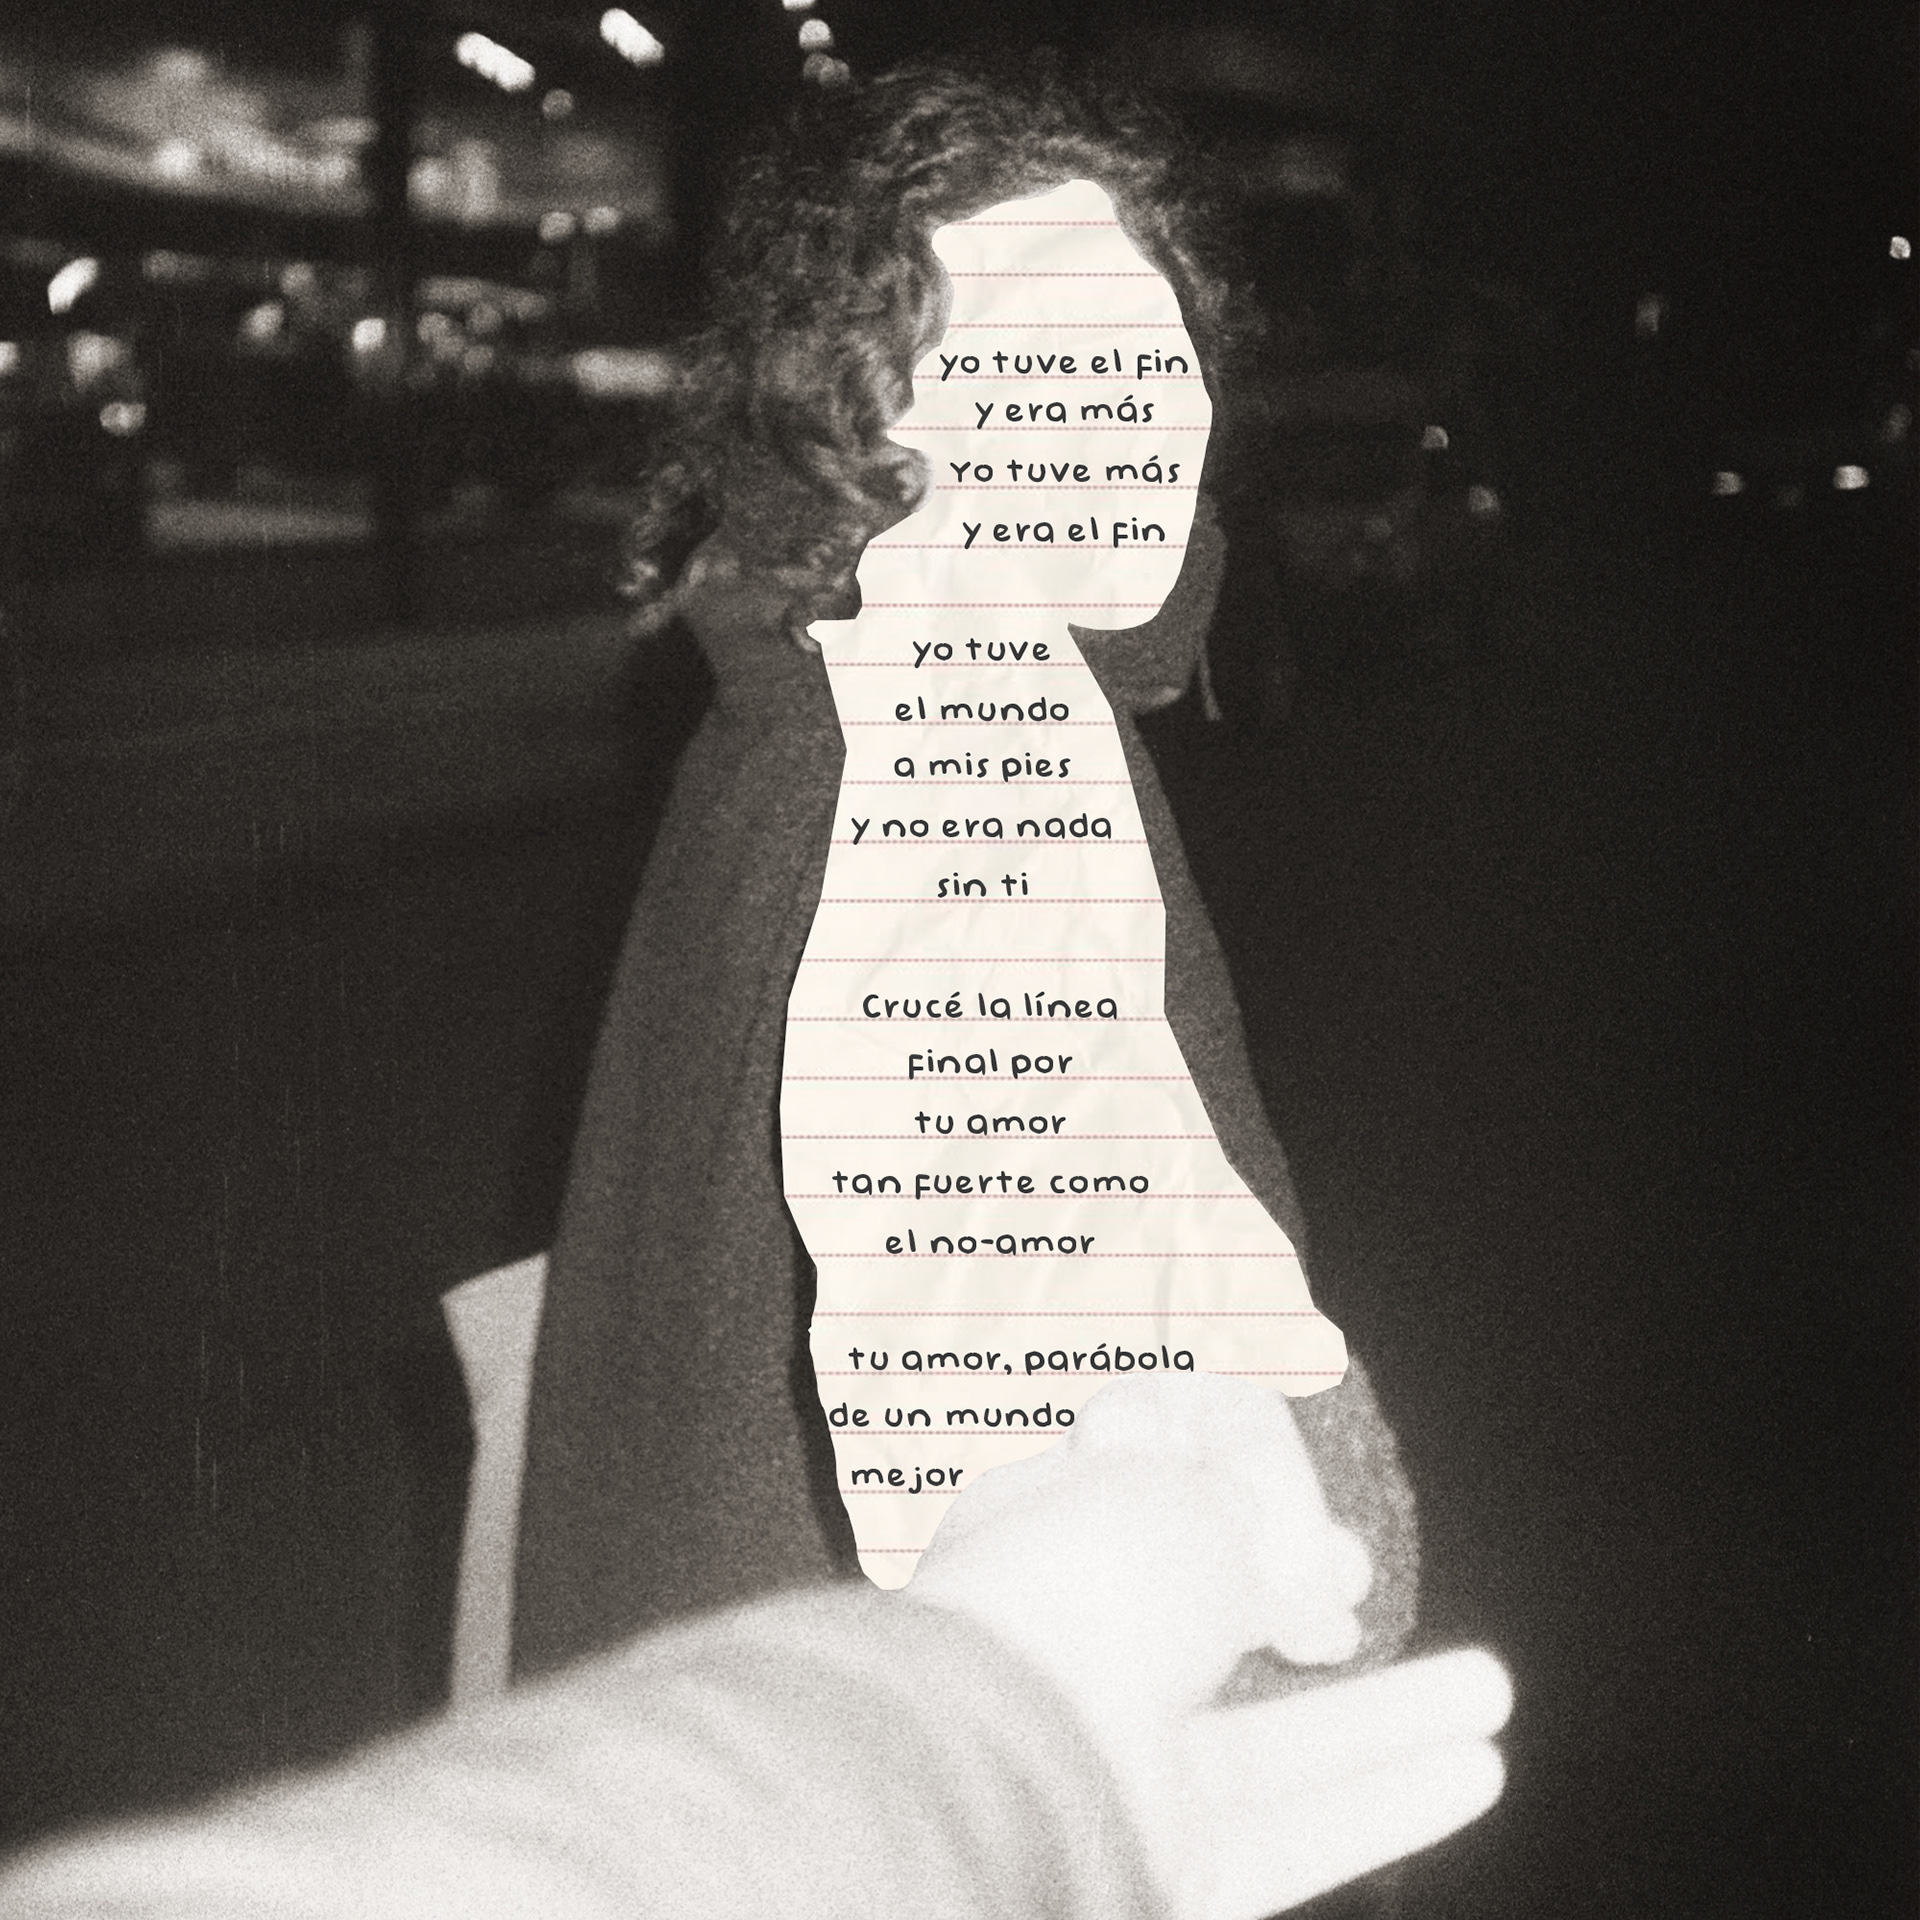 yo tuve el fin
y era más
Yo tuve más
y era el fin
yo tuve
el mundo
a mis pies
y no era nada
sin ti
Crucé la línea
final por
tu amor
tan fuerte como
el no-amor
tu amor, parábola
de un mundo
mejor